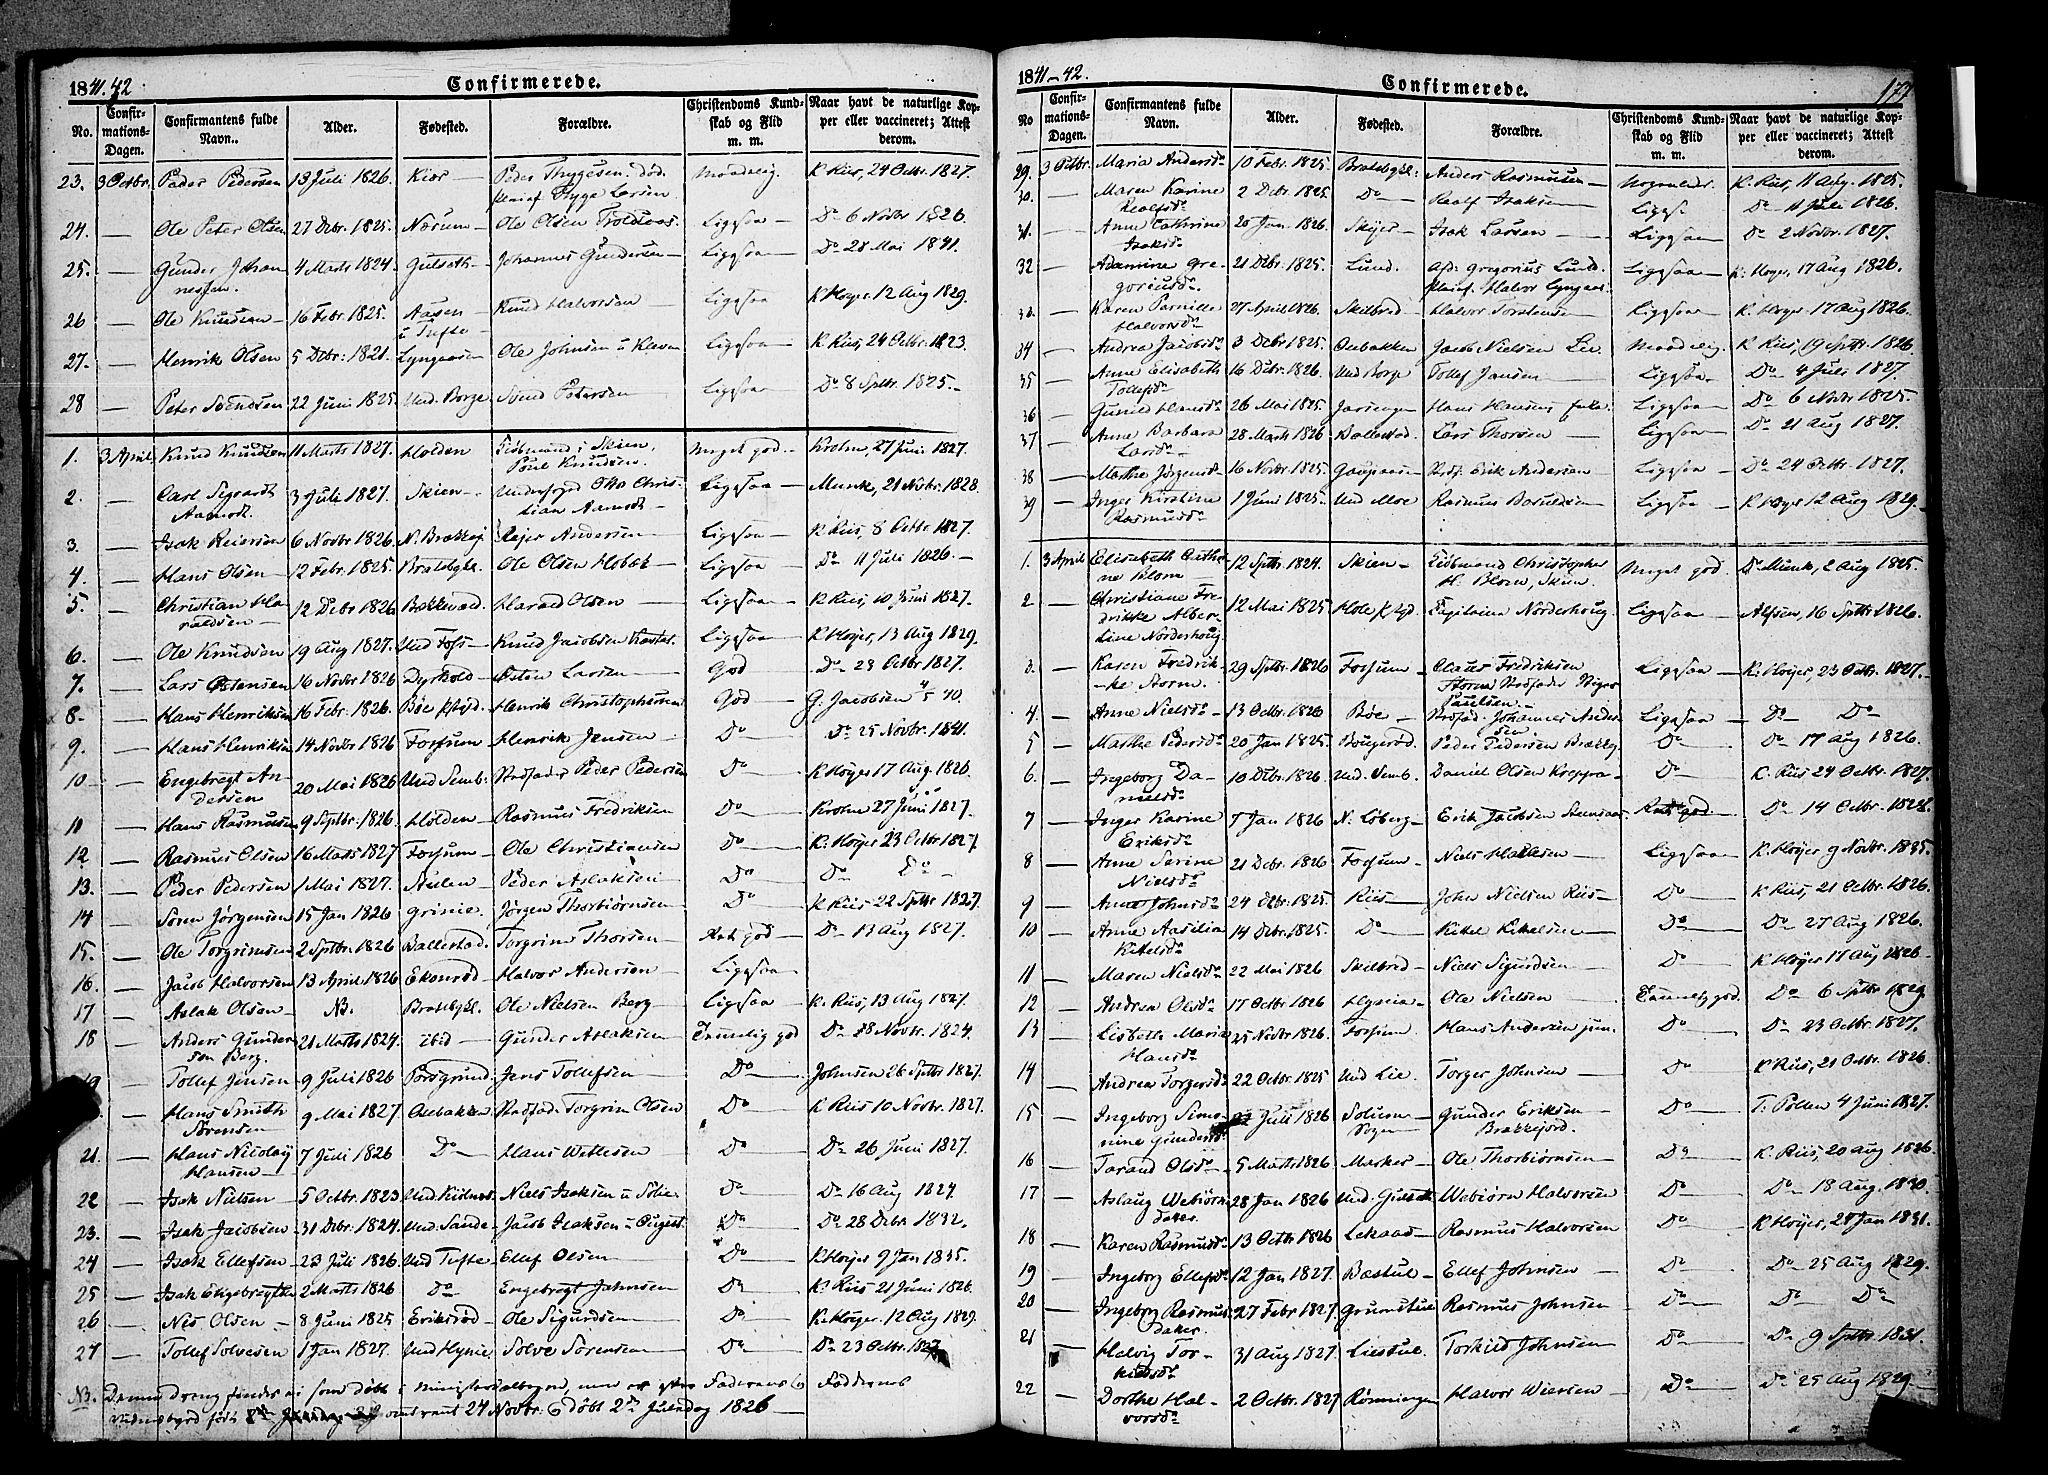 1841.42
Confirmerede.
No. Confirmations-Dagen. Confirmantens fulde Navn. Alder. Fødested. Forældre. Christendoms Kundskab og Flid m. m. Naar havt de naturlige Kopper eller vaccineret; Attest derom.
23. 3 Octbr. Peder Pedersen 13 Juli 1826. Kiær Peder Thygesen. død. Maadelig. K. Riis, 24 Octbr. 1827.
Pleief. Thyge Larsen
24. — Ole Peter Olsen 27 Debr. 1825. Nærum Ole Olsen Troldvas. Ligesaa Do 6 Novbr 1826.
25. — Gunder Johannessen. 4 Marts 1824 Gulseth Johannes Gundersen Ligesaa Do 28 Mai 1841.
26 — Ole Knudsen 16 Febr. 1825. Aasen u Tufte Knud Halvorsen Ligesaa K Høyer 12 Aug 1829.
27. — Henrik Olsen 5 Debr. 1821. Lyngaasen Ole Johnsen u Kleven Ligesaa K Riis, 24 Octbr. 1823.
28 — Peter Svendsen 22 Juni 1825 Und. Borge Svend Petersen Ligesaa Do 8 Sptbr. 1825.
1. 3 April Knud Knudsen 11 Marts 1827. Holden Kiøbmand i Skien, Poul Knudsen. Meget god. Krohn, 27 Juni 1827.
2. — Carl Segvardt Aamodt. 3 Juli 1827. Skien Underfoged Otto Christian Aamodt Ligesaa Munk, 21 Novbr. 1828.
3. — Isak Reiersen 6 Novbr 1826. N. Brække Rejer Andersen Ligesaa K Riis, 8 Octbr 1827.
4. — Hans Olsen 12 Febr. 1825. Bratsbgkl. Ole Olsen Hobæk Ligesaa Do 11 Juli 1826.
5. — Christian Haraldsen 12 Debr 1826 Bakkevad. Harald Olsen Ligesaa K Riis, 10 Juni 1827.
6. — Ole Knudsen 19 Aug 1827. Und Foss Knud Jacobsen Kastet. Ligesaa K Høyer, 13 Aug 1829.
7. — Lars Østensen 16 Novbr 1826 Dyrkold Østen Larsen God Do 23 Octbr 1827.
8. — Hans Henriksen 16 Febr. 1826. Bøe Henrik Christophersen God G. Jacobsen 4/5 40.
9. — Hans Henriksen 14 Novbr 1826 Fossum Henrik Jensen Do Do 25 Novbr. 1841.
10 — Engebregt Andersen 20 Mai 1826 Und Semb. Stedfader Peder Pedersen Do K Høyer 17 Aug. 1826.
11 — Hans Rasmussen 9 Septbr. 1826. Holden Rasmus Fredriksen Do Krohn 27 Juni 1827.
12 — Rasmus Olsen 16 Marts 1827 Fossum Ole Christiansen Do K. Høyer 23 Octbr 1827.
13. — Peder Pedersen 1 Mai 1827. Aulen Peder Aslaksen Do Do Do
14 — Soren Jørgensen 15 Jan 1826 Grinie. Jørgen Thorbiørnsen Do K Riis 22 Septbr 1827.
15. — Ole Torgrimsen 2 Septbr. 1826 Ballestad. Torgrim Thorsen Ret god Do 13 Aug 1827.
16. — Jacob Halvorsen 13 April 1826 Ekornrød Halvor Andersen Ligesaa
17 — Aslak Olsen NB. Bratsbgkl. Ole Nielsen Berg Ligesaa K. Riis, 13 Aug 1827.
18 — Anders Gundersen Berg. 21 Marts 1824. ibid Gunder Aslaksen Temmelig god Do 28 Novbr. 1824.
19 — Tollef Jensen 9 Juli 1826 Porsgrund Jens Tollefsen Do Johnsen 26 Septbr 1827.
— Hans Smith Sørensen 9 Mai 1827 Ouebakken Stedfad. Torgrim Olsen Do K Riis 10 Novbr. 1827.
21. — Hans Nicolay Hansen 7 Juli 1826 Do Hans Wettesen Do Do 26 Juni 1827.
22 — Isak Nielsen 5 Octbr. 1823 Und Kiilnes Niels Isaksen u Solie Do Do 16 Aug 1824.
23. — Isak Jacobsen 31 Debr. 1824. Und. Sande Jacob Isaksen Do Do 28 Debr. 1832.
24 — Isak Ellefsen 23 Juli 1826. Und Tufte Ellef Olsen Do K Høyer 9 Jan 1835.
25 — Isak Engebregtsen 2 Marts 1826 Do Engebregt Johnsen Do K. Riis 21 Juni 1826.
26 — Nis Olsen 8 Juni 1825 Eriksrød Ole Sigurdsen Do K. Høyer. 12 Aug 1829.
27 — Tollef Solvesen 1 Jan 1827. Und Hynie Solve Sørensen Do Do 23 Octbr. 1827
NB. Denne Dreng findes ei som døbt i Ministerialbogen, men er efter Faderens Føddernes
Vidnesbyrd født 24 Novbr. døbt 2den Juledag 1826

1841-42.
Confirmerede.
177
No Confirmations-Dagen. Confirmantens fulde Navn. Alder. Fødested. Forældre. Christendoms Kundskab og Flid m. m. Naar havt de naturlige Kopper eller vaccineret; Attest derom.
29. 3 Octbr. Maria Andersd. 10 Febr. 1825. Bratsbgkl. Anders Rasmussen K. Riis, 11 Aug. 1825.
30. — Maren Karine Roalfsd. 2 Debr 1825. Do Roalf Isaksen Ligesa Do 11 Juli 1826.
31. — Anne Cathrine Isaksd. 20 Jan. 1826. Skyer Isak Larsen Ligesaa Do 2 Novbr. 1827.
32 — Adamine Gregoriusd. 21 Debr. 1825. Lund. Afd. Gregorius Lund. Pleief. Halvor Lyngaas. Ligesaa K. Høyer, 17 Aug 1826.
33 — Karen Pernille Halvorsd. 27 April 1826. Skilbred Halvor Torstensen Ligesaa K. Høyer 17 Aug 1826.
34 — Andrea Jacobsd. 3 Debr 1825. Ouebakken Jacob Nielsen Lie. Maadelig K Riis, 19 Septbr. 1826.
35 — Anne Elisabeth Tollefsd. 16 Debr. 1826. Und Borge Tollef Jansen Ligesaa Do 4 Juli 1827.
36 — Gunild Hansd. 26 Mai 1825. Jarseng Hans Hansen Ligesaa Do 6 Novbr 1825.
37 — Anne Barbara Larsd. 28 Marts 1826 Ballestad. Lars Thorsen Ligesaa Do 21 Aug 1827.
38 — Marthe Jørgensd. 16 Novbr. 1825. Stedf. Erik Andersen Ligesaa Do 24 Octbr. 1827.
39 — Inger Kirstine Rasmusd. 1 Juni 1825. Und Moe Rasmus Ligesaa K Høyer 12 Aug 1829.
1. 3 April Elisabeth Cathrine Blom 12 Septbr. 1824. Skien Kiøbmand Christopher H. Blom, Skien. Meget god. Dr Munk, 2 Aug 1825.
2. — Christiane Fredrikke Albertine Nørdehoug 12 Mai 1825. Hole Capitaine Nørdehoug Ligesaa Alfsen, 16 Septbr 1826.
3. — Karen Fredrikke Storm. 29 Sptbr 1826 Fossum Claus Fredriksen Storm Stedfader Paulsen Ligesaa K. Høyer, 23 Octbr. 1827.
4. — Anne Nielsd. 13 Octbr. 1826 Bøe Stedfad. Johannes Andersen Ligesaa Do Do
5 — Marthe Pedersd. 20 Jan 1825. Bougerød. Peder Pedersen Brække Do Do 17 Aug 1826.
6. — Ingeborg Danielsd. 10 Debr. 1826. Und. Semb. Daniel Olsen Do K. Riis 24 Octbr. 1827.
7 — Inger Karine Eriksd. 7 Jan 1826 N. Løberg Erik Jacobsen Stensaas Ret god. Do 14 Octbr.
8 — Anne Serine Nielsd. 21 Debr. 1826 Fossum Niels Ligesaa K. Høyer 9 Novbr. 1835.
9 — Anne Johnsd. 24 Debr. 1825. Riis John Nielsen Riis Do K Riis, 21 Octbr. 1826.
10 — Anne Aasilia Kittelsd. 14 Debr. 1825. Do Kittel Kittelsen Do Do 27 Aug 1826.
11 — Maren Nielsd. 22 Mai 1826 Skilbred Niels Sigurdsen Do K Høyer 17 Aug 1826
12 — Andrea Olsd. 17 Octbr 1826 Hynie Ole Nielsen Temmelig god. Do 6 Sptbr 1829.
13 — Lisbeth Maria Hansd. 25 Novbr 1826. Fossum. Hans Andersen jun. Do Do 23 Octbr. 1827.
14 — Andrea Torgersd. 22 Octbr. 1825 Und Lie. Torger Johnsen Do K Riis, 21 Octbr. 1826.
15 — Ingeborg Simonine Gundersd. Juli 1826 Solum Sogn Gunder Eriksen Brækkejord. Do T. Pollen 4 Juni 1827.
16 — Tarand Olsd. 5 Marts 1826 Marker Ole Thorbiørnsen Do K. Riis, 20 Aug 1826.
17 — Aslaug Webiørnsdater. 28 Jan 1826 Und. Gulseth Webiørn Halvorsen Do Do 18 Aug. 1830.
18 — Karen Rasmusd. 13 Octbr 1826 Lekaas Rasmus Halvorsen Do K Høyer, 28 Jan 1831.
19 — Ingeborg Ellefsd. 12 Jan 1827. Bæstul Ellef Johnsen Do Do 25 Aug 1829.
20 — Ingeborg Rasmusdater. 27 Febr 1827. Grumstul Rasmus Johnsen Do Do Do
21 — Helvig Torkildsd. 31 Aug 1827. Liestul. Torkild Johnsen Do Do 9 Sptbr 1831.
22 — Dorthe Halvorsd. 2 Octbr. 1827 Rønningen Halvor Wiersen Do Do 25 Aug 1829